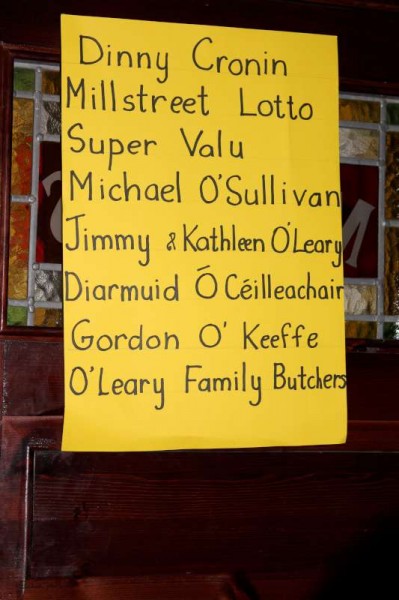 Dinny Cronin
Millstreet Lotto
Super Valu
Michael O'Sullivan
Jimmy & Kathleen O'Leary
Diarmuid Ó Céilleachair
Gordon O' Keeffe
O'Leary Family Butchers